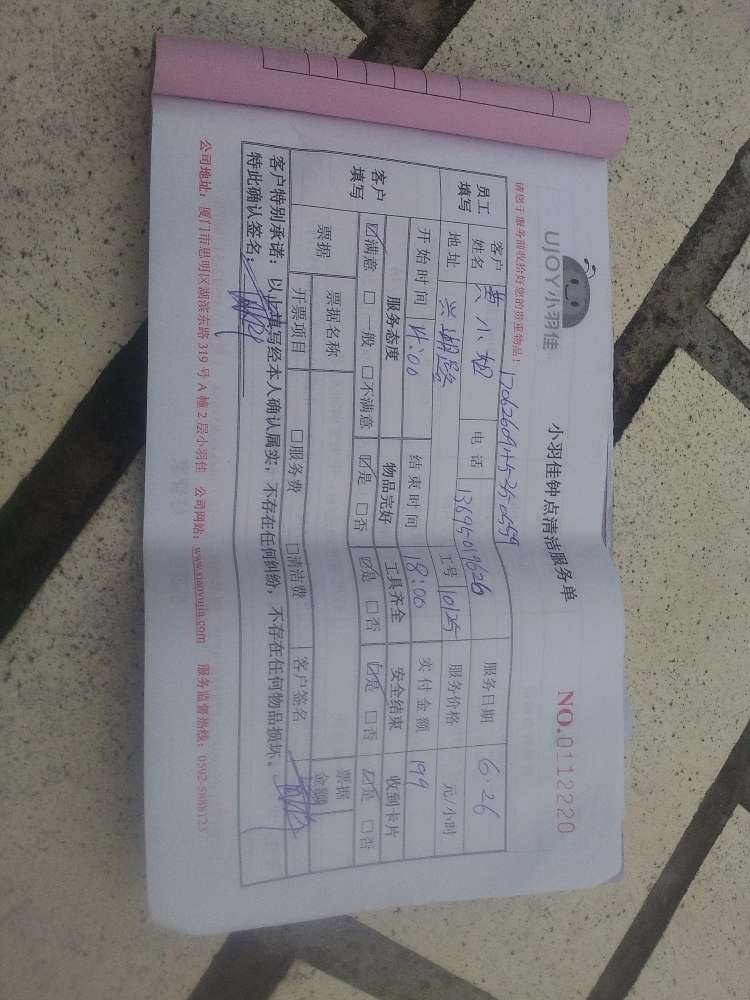 UJOY小羽佳
小羽佳钟点清洁服务单
NO.0112220
请您于服务前收拾好您的贵重物品！
员工填写 客户姓名 黄小姐 电话 13695019626 服务日期 6.26
地址 兴湖路 工号 10125 服务价格 元/小时
客户填写 开始时间 14:00 结束时间 18:00 实付金额 199
服务态度 物品完好 工具齐全 安全结束 收到卡片
☑满意 □一般 □不满意 ☑是 □否 ☑是 □否 ☑是 □否 ☑是 □否
票据 票据名称 票据金额
开票项目 □服务费 □清洁费 客户签名
客户特别承诺：以上填写经本人确认属实，不存在任何纠纷，不存在任何物品损坏。
特此确认签名：
公司地址：厦门市思明区湖滨东路 319 号 A 幢 2 层小羽佳 公司网站：www.xiaoyujia.com 服务监督热线：0592-5888123